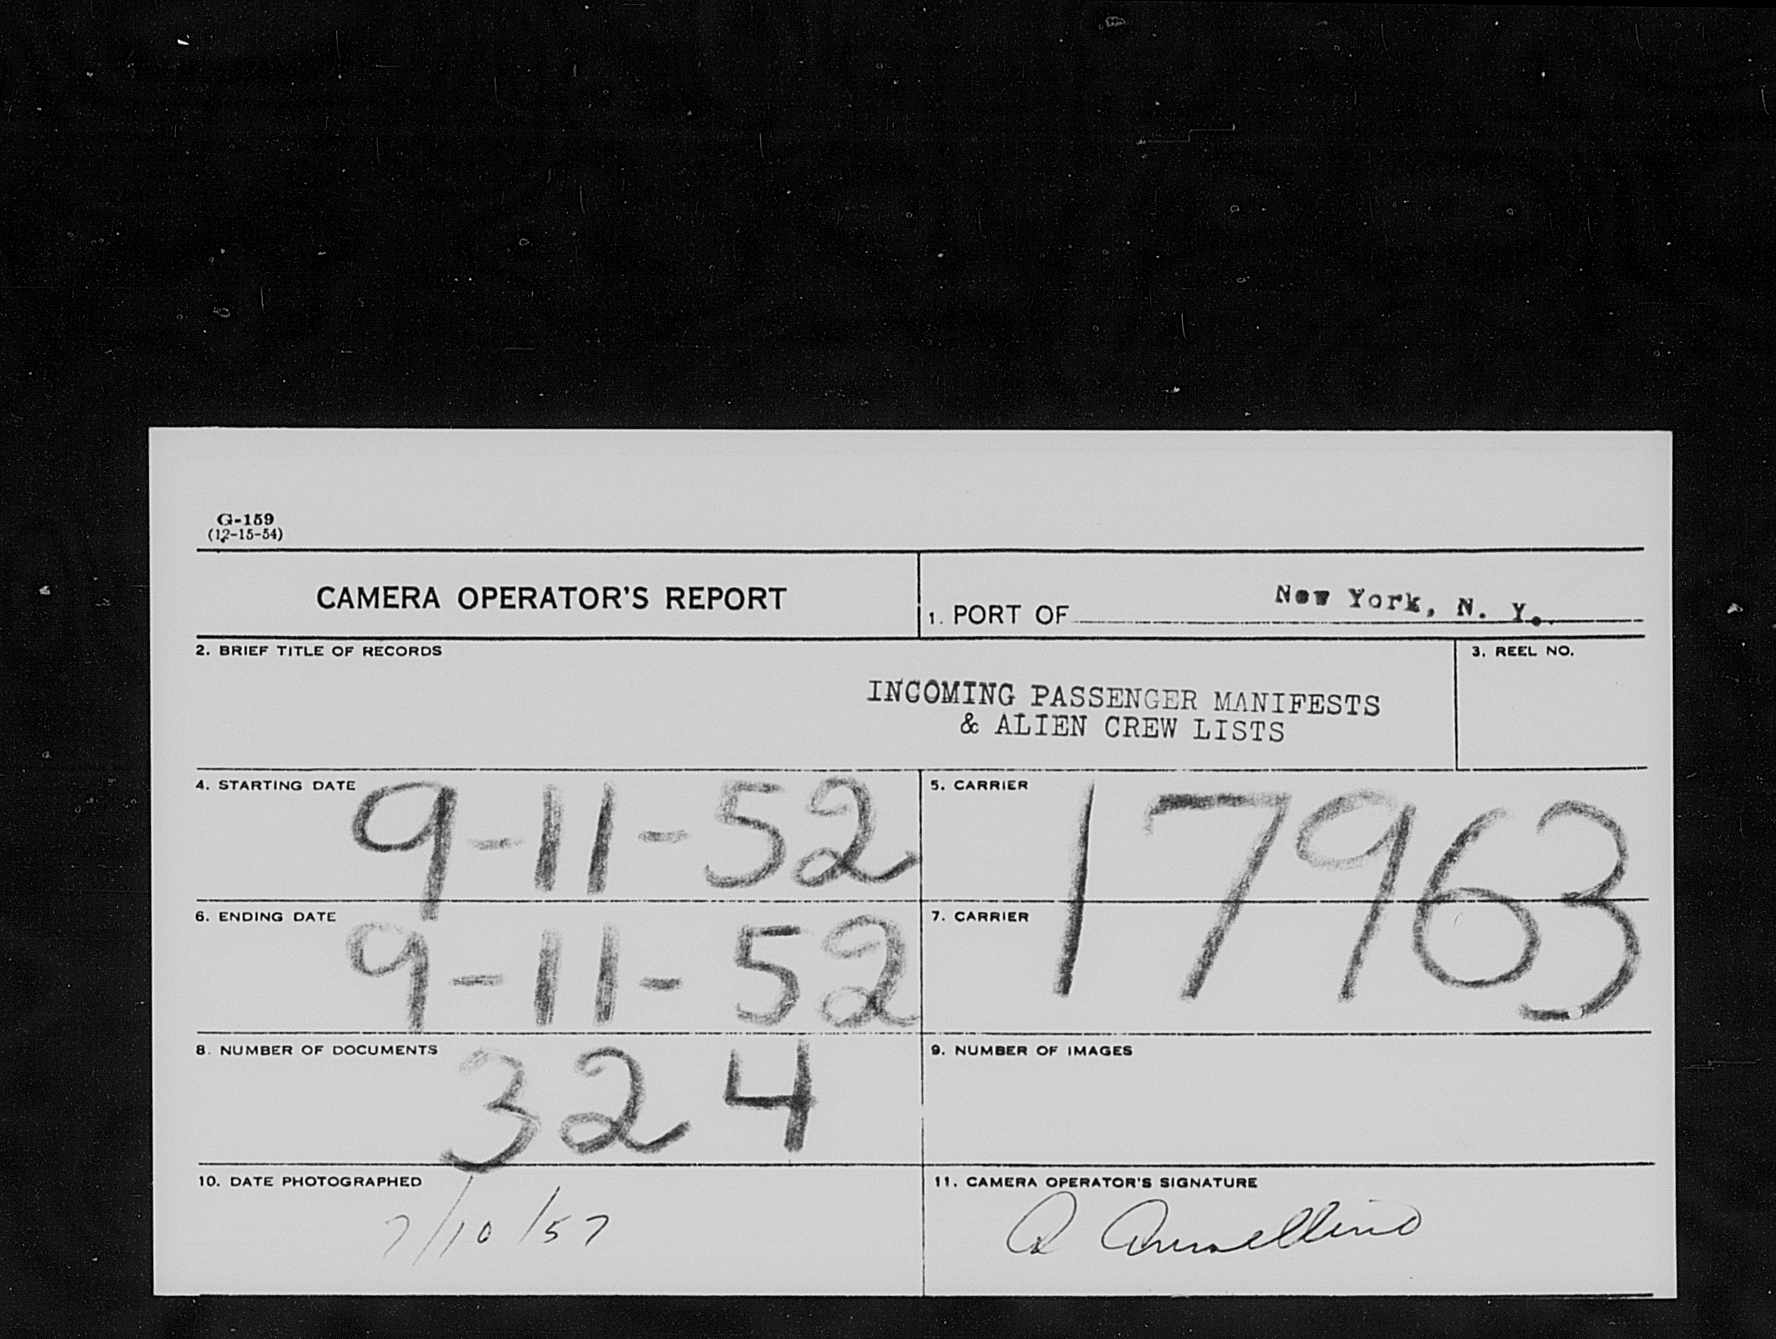 G-159
(12-15-54)
CAMERA OPERATOR'S REPORT
1. PORT OF New York, N. Y.
2. BRIEF TITLE OF RECORDS
INCOMING PASSENGER MANIFESTS
& ALIEN CREW LISTS
3. REEL NO.
4. STARTING DATE 9-11-52
5. CARRIER
17963
6. ENDING DATE 9-11-52
7. CARRIER
8. NUMBER OF DOCUMENTS 324
9. NUMBER OF IMAGES
10. DATE PHOTOGRAPHED
7/10/57
11. CAMERA OPERATOR'S SIGNATURE